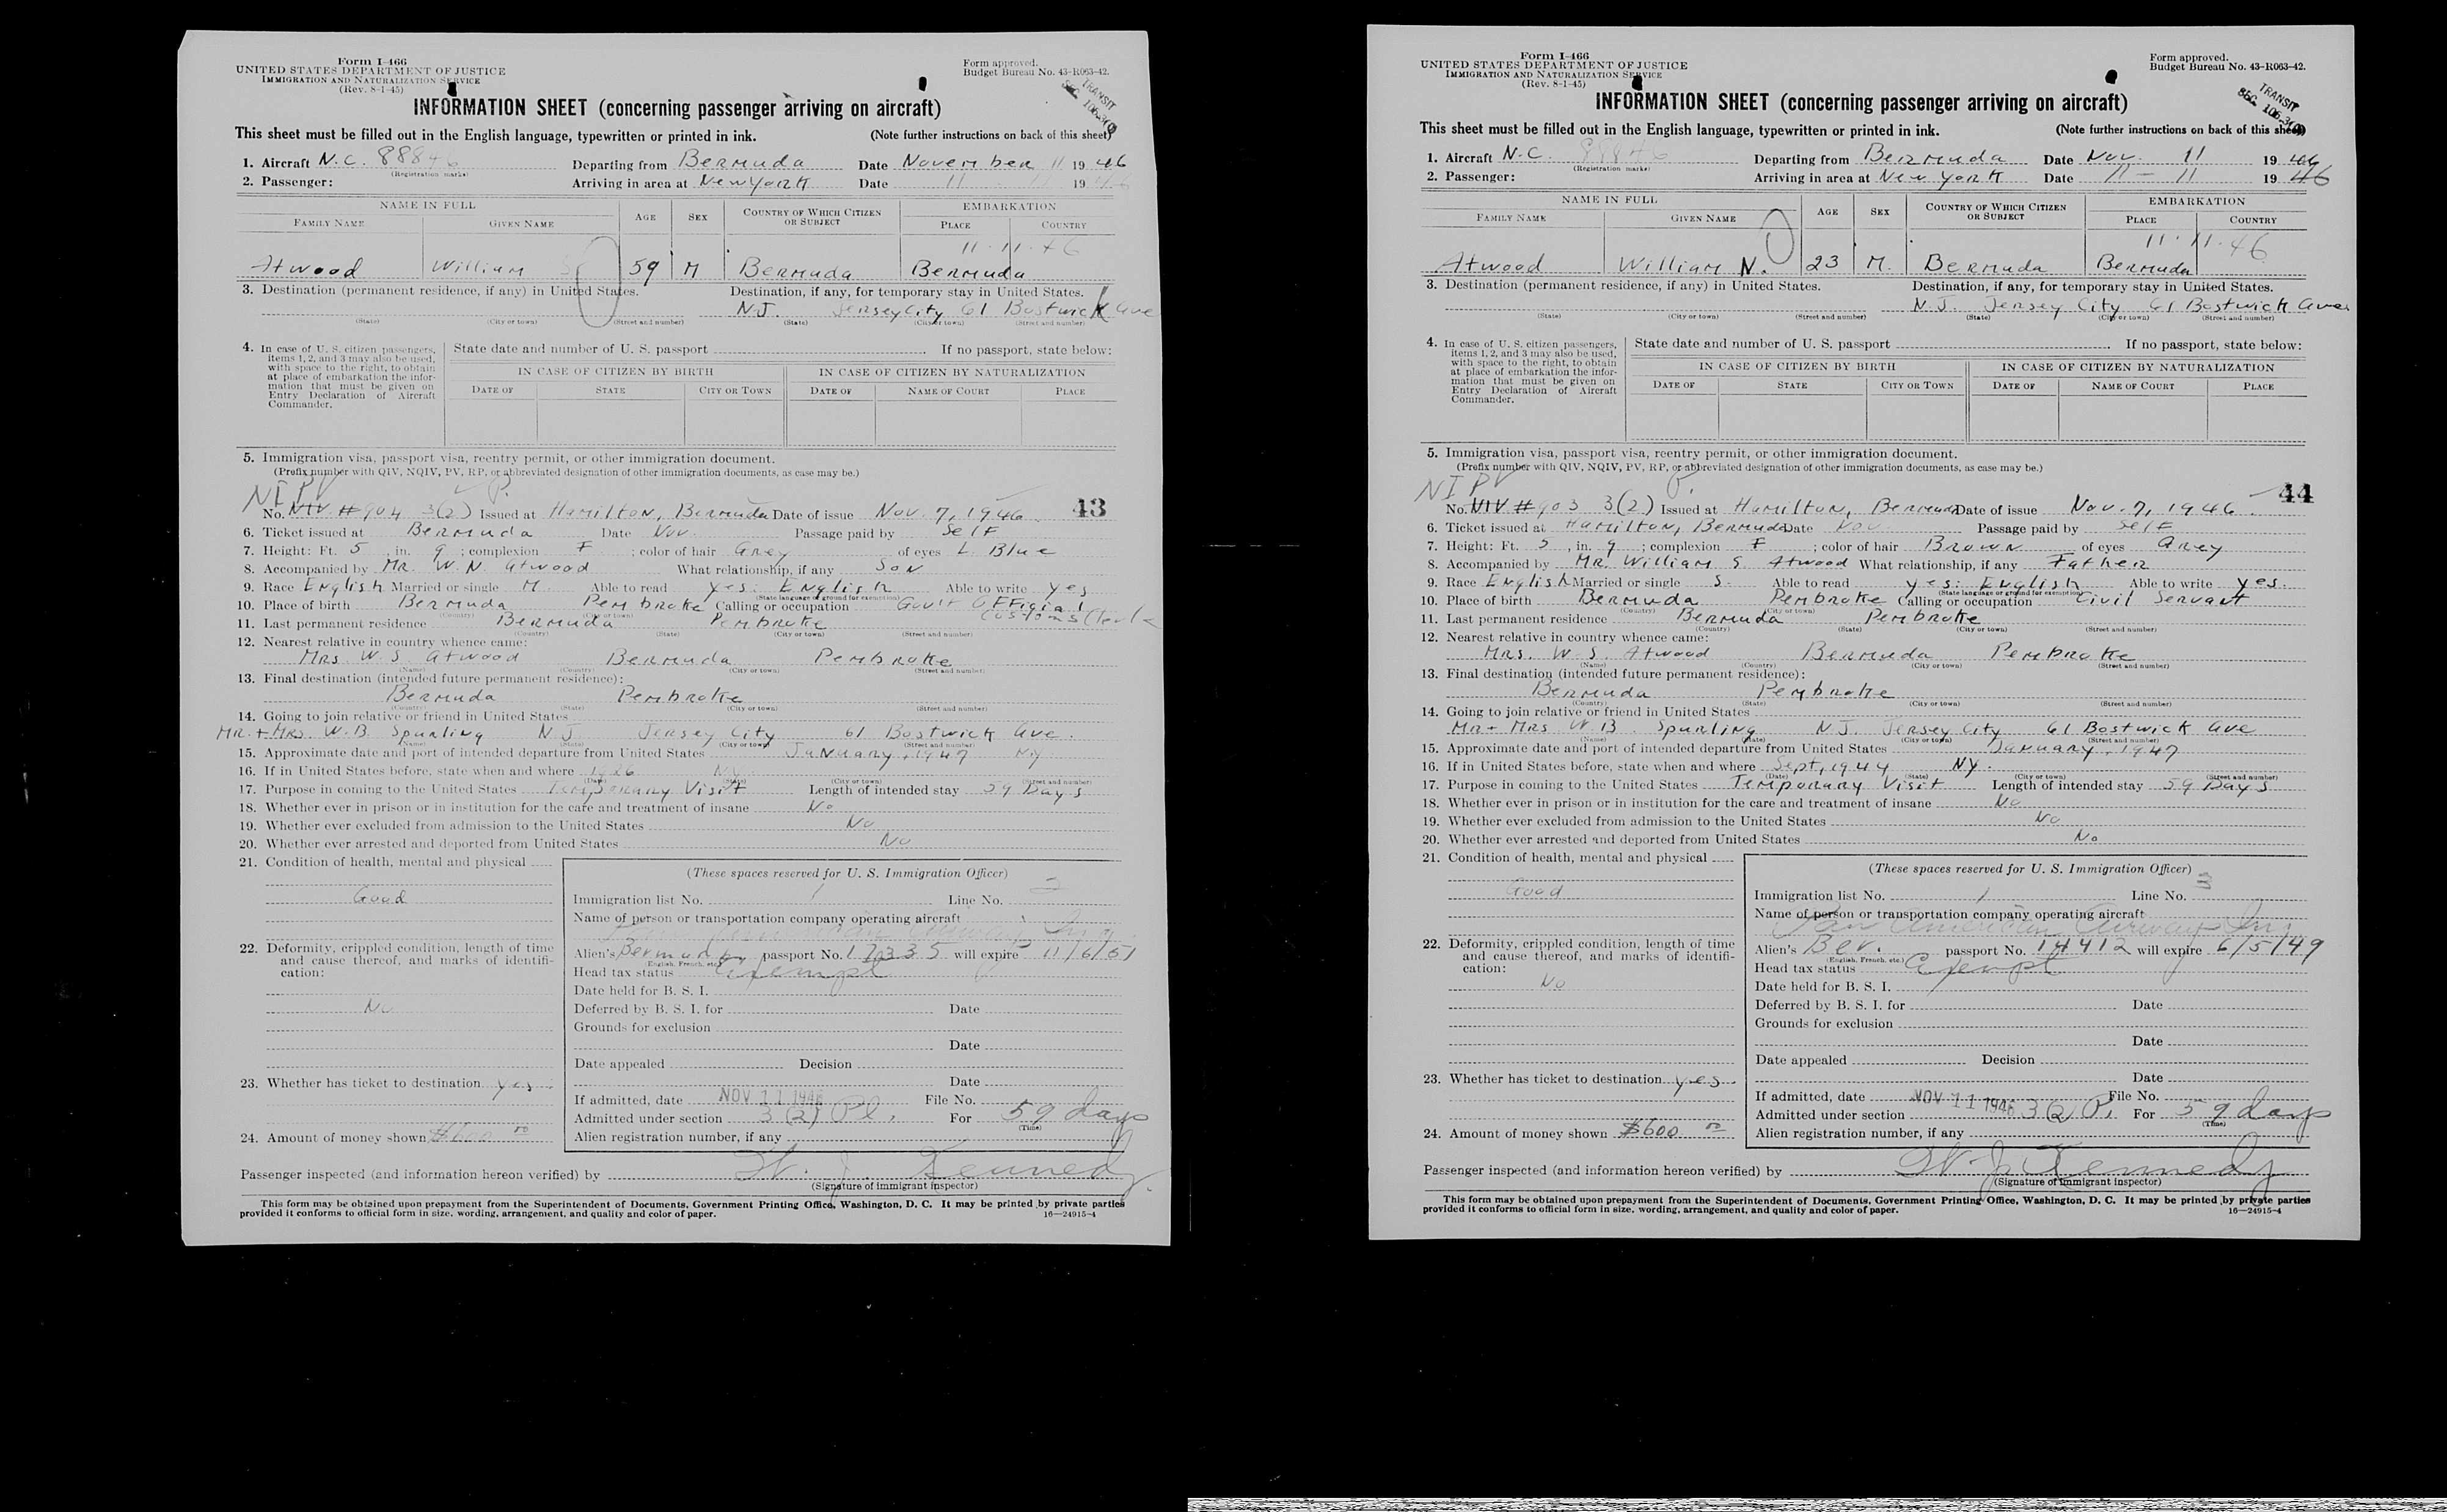 Form I-466
UNITED STATES DEPARTMENT OF JUSTICE
IMMIGRATION AND NATURALIZATION SERVICE
(Rev. 8-1-45)
Form approved.
Budget Bureau No. 43-R063-42.
TRANSIT
SEC. 106.3(
INFORMATION SHEET (concerning passenger arriving on aircraft)
This sheet must be filled out in the English language, typewritten or printed in ink. (Note further instructions on back of this sheet)
1. Aircraft N.C. 88846 Departing from Bermuda Date November 11 1946
(Registration marks)
2. Passenger: Arriving in area at New York Date 11 11 1946
NAME IN FULL AGE SEX COUNTRY OF WHICH CITIZEN OR SUBJECT EMBARKATION
FAMILY NAME GIVEN NAME PLACE COUNTRY
11·11·46
Atwood William S 59 M Bermuda Bermuda
3. Destination (permanent residence, if any) in United States. Destination, if any, for temporary stay in United States.
N.J. Jersey City 61 Bostwick Ave
(State) (City or town) (Street and number) (State) (City or town) (Street and number)
4. In case of U. S. citizen passengers, items 1, 2, and 3 may also be used, with space to the right, to obtain at place of embarkation the information that must be given on Entry Declaration of Aircraft Commander.
State date and number of U. S. passport If no passport, state below:
IN CASE OF CITIZEN BY BIRTH IN CASE OF CITIZEN BY NATURALIZATION
DATE OF STATE CITY OR TOWN DATE OF NAME OF COURT PLACE
5. Immigration visa, passport visa, reentry permit, or other immigration document.
(Prefix number with QIV, NQIV, PV, RP, or abbreviated designation of other immigration documents, as case may be.)
NI PV P. 43
No. NIV #904 3(2) Issued at Hamilton, Bermuda Date of issue Nov. 7, 1946
6. Ticket issued at Bermuda Date Nov. Passage paid by Self
7. Height: Ft. 5, in. 9; complexion F; color of hair Grey of eyes L. Blue
8. Accompanied by Mr. W. N. Atwood What relationship, if any Son
9. Race English Married or single M. Able to read yes: English Able to write yes
(State language or ground for exemption)
10. Place of birth Bermuda Pembroke Calling or occupation Gov't Official
(Country) (City or town) Customs Clerk
11. Last permanent residence Bermuda Pembroke
(Country) (State) (City or town) (Street and number)
12. Nearest relative in country whence came:
Mrs. W. S. Atwood Bermuda Pembroke
(Name) (Country) (City or town) (Street and number)
13. Final destination (intended future permanent residence):
Bermuda Pembroke
(Country) (State) (City or town) (Street and number)
14. Going to join relative or friend in United States
Mr. + Mrs. W. B. Spurling N.J. Jersey City 61 Bostwick Ave.
(Name) (State) (City or town) (Street and number)
15. Approximate date and port of intended departure from United States January, 1947 NY
16. If in United States before, state when and where 1926 NY
(Date) (State) (City or town) (Street and number)
17. Purpose in coming to the United States Temporary Visit Length of intended stay 59 Days
18. Whether ever in prison or in institution for the care and treatment of insane No
19. Whether ever excluded from admission to the United States No
20. Whether ever arrested and deported from United States No
21. Condition of health, mental and physical
Good
22. Deformity, crippled condition, length of time and cause thereof, and marks of identification:
No
23. Whether has ticket to destination yes
24. Amount of money shown $600 00
(These spaces reserved for U. S. Immigration Officer)
Immigration list No. 1 Line No. 2
Name of person or transportation company operating aircraft
Pan American Airways Inc.
Alien's Bermuda passport No. 17335 will expire 11/6/51
(English, French, etc.)
Head tax status Exempt
Date held for B. S. I.
Deferred by B. S. I. for Date
Grounds for exclusion
Date
Date appealed Decision
Date
If admitted, date NOV 11 1946 File No.
Admitted under section 3(2) Pl. For 59 days
(Time)
Alien registration number, if any
Passenger inspected (and information hereon verified) by W. J. Kennedy
(Signature of immigrant inspector)
This form may be obtained upon prepayment from the Superintendent of Documents, Government Printing Office, Washington, D. C. It may be printed by private parties
provided it conforms to official form in size, wording, arrangement, and quality and color of paper. 16—24915-4
Form I-466
UNITED STATES DEPARTMENT OF JUSTICE
IMMIGRATION AND NATURALIZATION SERVICE
(Rev. 8-1-45)
Form approved.
Budget Bureau No. 43-R063-42.
TRANSIT
SEC. 106.3(
INFORMATION SHEET (concerning passenger arriving on aircraft)
This sheet must be filled out in the English language, typewritten or printed in ink. (Note further instructions on back of this sheet)
1. Aircraft N.C. 88846 Departing from Bermuda Date Nov. 11 1946
(Registration marks)
2. Passenger: Arriving in area at New York Date 11 - 11 1946
NAME IN FULL AGE SEX COUNTRY OF WHICH CITIZEN OR SUBJECT EMBARKATION
FAMILY NAME GIVEN NAME PLACE COUNTRY
11·11·46
Atwood William N. 23 M. Bermuda Bermuda
3. Destination (permanent residence, if any) in United States. Destination, if any, for temporary stay in United States.
N.J. Jersey City 61 Bostwick Ave
(State) (City or town) (Street and number) (State) (City or town) (Street and number)
4. In case of U. S. citizen passengers, items 1, 2, and 3 may also be used, with space to the right, to obtain at place of embarkation the information that must be given on Entry Declaration of Aircraft Commander.
State date and number of U. S. passport If no passport, state below:
IN CASE OF CITIZEN BY BIRTH IN CASE OF CITIZEN BY NATURALIZATION
DATE OF STATE CITY OR TOWN DATE OF NAME OF COURT PLACE
5. Immigration visa, passport visa, reentry permit, or other immigration document.
(Prefix number with QIV, NQIV, PV, RP, or abbreviated designation of other immigration documents, as case may be.)
NI PV P. 44
No. NIV #903 3(2) Issued at Hamilton, Bermuda Date of issue Nov. 7, 1946
6. Ticket issued at Hamilton, Bermuda Date Nov. Passage paid by Self
7. Height: Ft. 5, in. 9; complexion F; color of hair Brown of eyes Grey
8. Accompanied by Mr. William S. Atwood What relationship, if any Father
9. Race English Married or single S. Able to read yes: English Able to write yes.
(State language or ground for exemption)
10. Place of birth Bermuda Pembroke Calling or occupation Civil Servant
(Country) (City or town)
11. Last permanent residence Bermuda Pembroke
(Country) (State) (City or town) (Street and number)
12. Nearest relative in country whence came:
Mrs. W. S. Atwood Bermuda Pembroke
(Name) (Country) (City or town) (Street and number)
13. Final destination (intended future permanent residence):
Bermuda Pembroke
(Country) (State) (City or town) (Street and number)
14. Going to join relative or friend in United States
Mr + Mrs W. B. Spurling N.J. Jersey City 61 Bostwick Ave
(Name) (State) (City or town) (Street and number)
15. Approximate date and port of intended departure from United States January, 1947
16. If in United States before, state when and where Sept, 1944 NY.
(Date) (State) (City or town) (Street and number)
17. Purpose in coming to the United States Temporary Visit Length of intended stay 59 Days
18. Whether ever in prison or in institution for the care and treatment of insane No
19. Whether ever excluded from admission to the United States No
20. Whether ever arrested and deported from United States No
21. Condition of health, mental and physical
Good
22. Deformity, crippled condition, length of time and cause thereof, and marks of identification:
No
23. Whether has ticket to destination yes
24. Amount of money shown $600 00
(These spaces reserved for U. S. Immigration Officer)
Immigration list No. 1 Line No. 3
Name of person or transportation company operating aircraft
Pan American Airways Inc.
Alien's Ber. passport No. 14412 will expire 6/5/49
(English, French, etc.)
Head tax status Exempt
Date held for B. S. I.
Deferred by B. S. I. for Date
Grounds for exclusion
Date
Date appealed Decision
Date
If admitted, date NOV 11 1946 File No.
Admitted under section 3(2) Pl. For 59 days
(Time)
Alien registration number, if any
Passenger inspected (and information hereon verified) by W. J. Kennedy
(Signature of immigrant inspector)
This form may be obtained upon prepayment from the Superintendent of Documents, Government Printing Office, Washington, D. C. It may be printed by private parties
provided it conforms to official form in size, wording, arrangement, and quality and color of paper. 16—24915-4